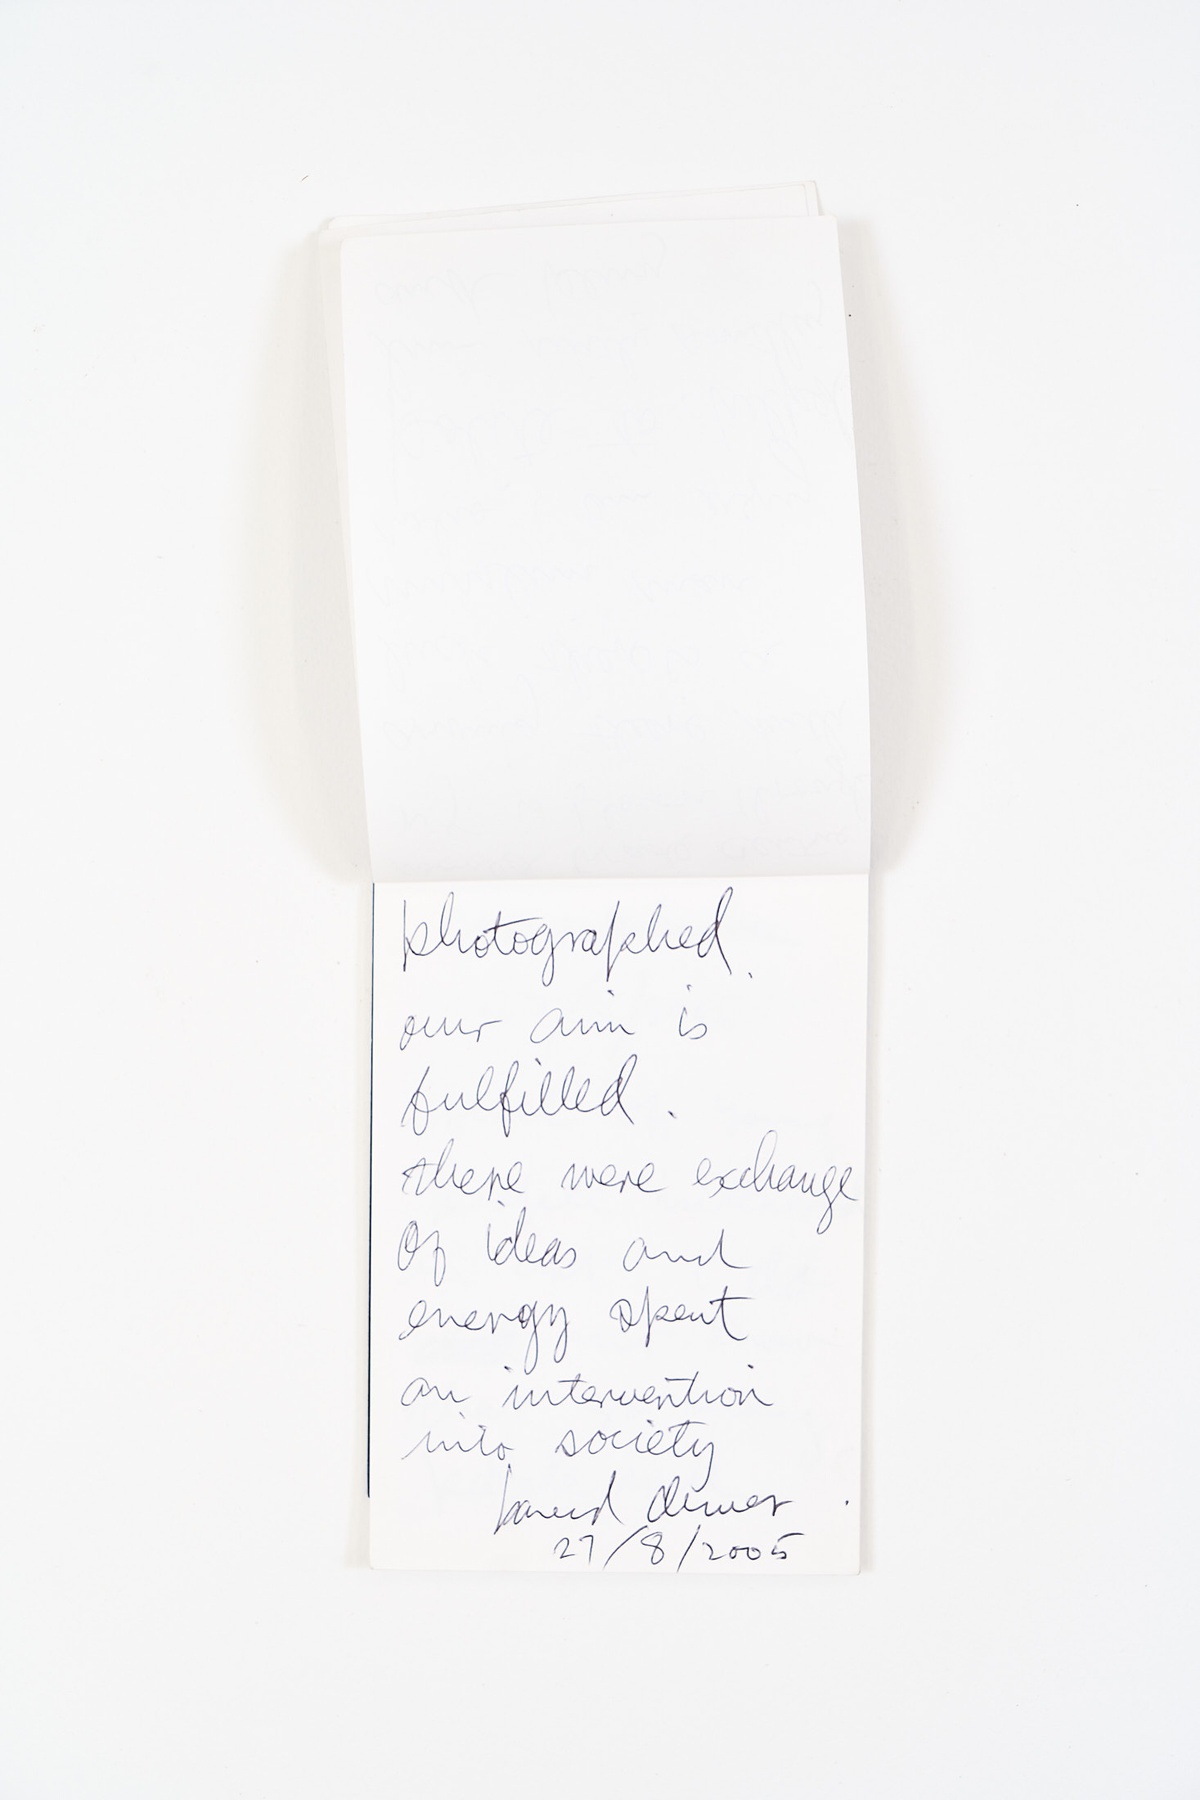 photographed.
our aim is
fulfilled.
there were exchange
of ideas and
energy spent
an intervention
into society
27/8/2005